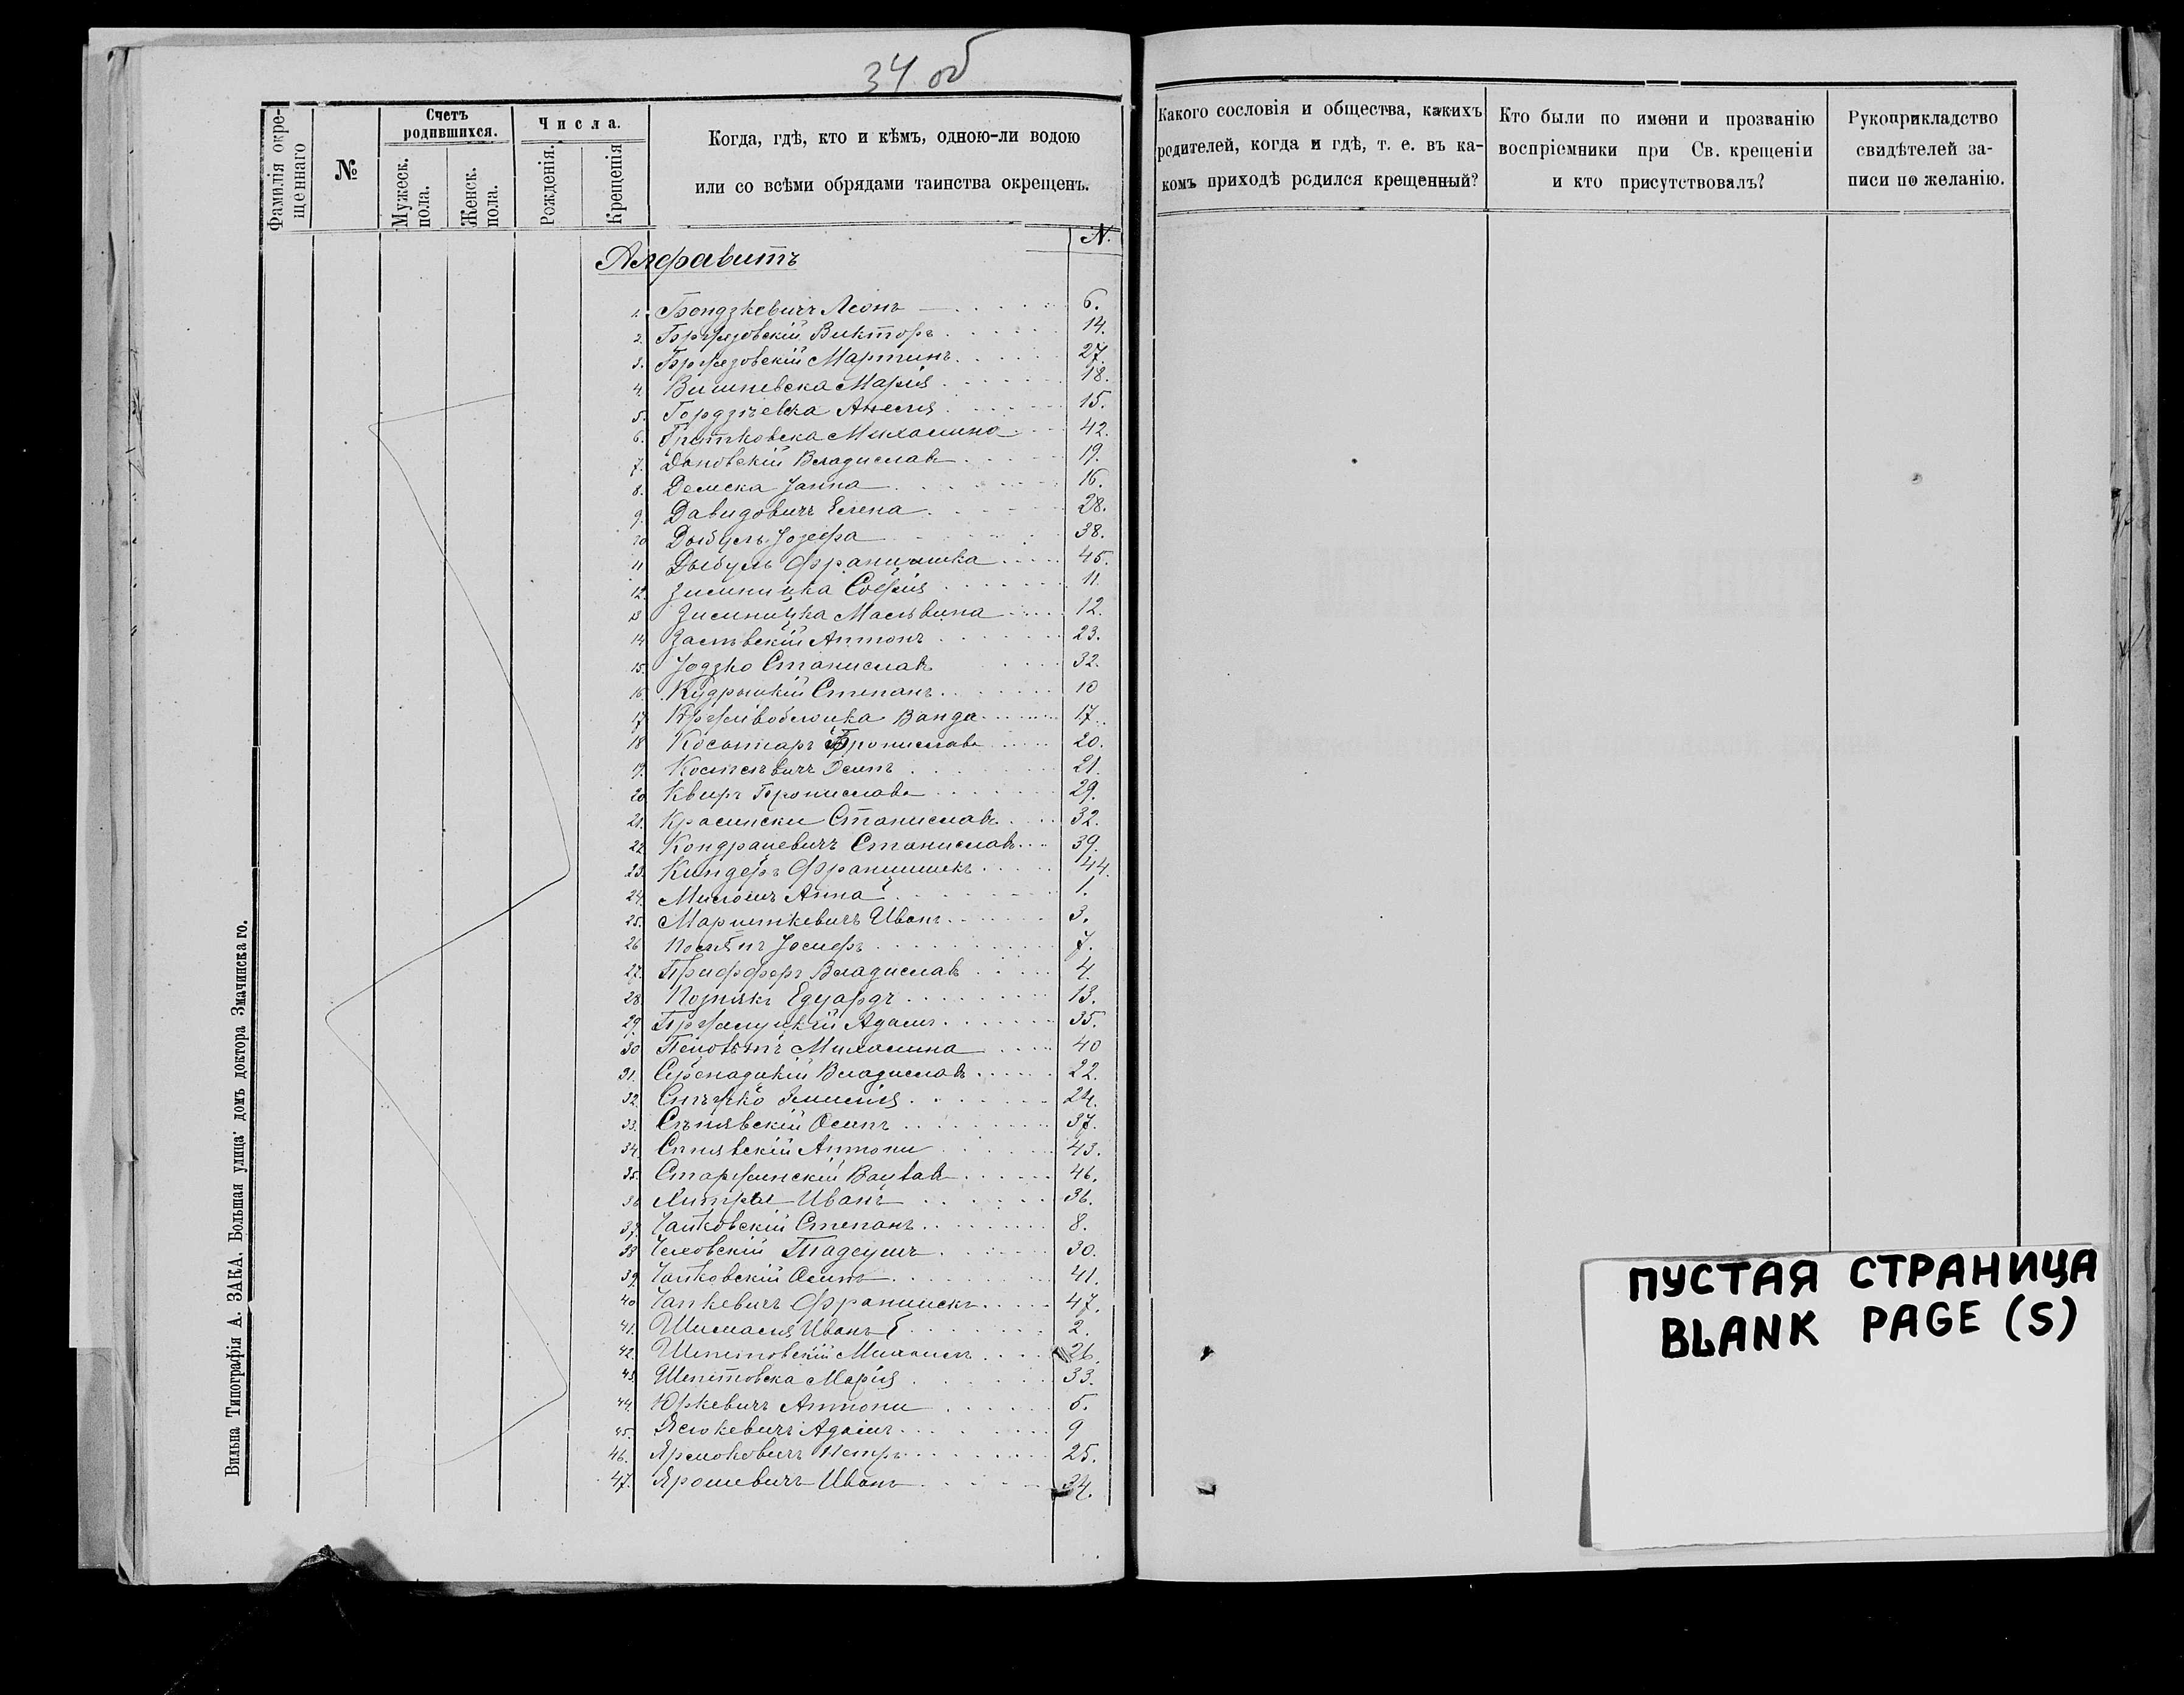 34 об
Фамилія окре-
щеннаго
№
Счетъ
родившихся.
Мужеск.
пола.
Женск.
пола.
Числа.
Рожденія.
Крещенія
Когда, гдѣ, кто и кѣмъ, одною-ли водою
или со всѣми обрядами таинства окрещенъ.
Какого сословія и общества, какихъ
родителей, когда и гдѣ, т. е. въ ка-
комъ приходѣ родился крещенный?
Кто были по имени и прозванію
воспріемники при Св. крещеніи
и кто присутствовалъ?
Рукоприкладство
свидѣтелей за-
писи по желанію.
N.
Алфавитъ
1. Бондзкевичъ Леонъ 6.
2. Бржезовскій Викторъ 14.
3. Бржезовскій Мартинъ 27.
4. Вишневска Марія 18.
5. Гордзѣевска Анеля 15.
6. Гритковска Михалина 42.
7. Владиславъ 19.
8. Янна 16.
9. Давидовичъ Елена 28.
10 Дыбуль Јозефа 38.
11 Дыбуль Францишка 45.
12. Зимницка Софія 11.
13 Зимницка Мальвина 12.
14 Антонъ 23.
15. Јодзко Станиславъ 32.
16. Кудрыцкій Степанъ 10
17 Крживоблоцка Ванда 17.
18 Брониславъ 20.
19. Осипъ 21.
20 Квиръ Бронислава 29.
21. Красински Станиславъ 32.
22 Кондрацевичъ Станиславъ 39.
23. Киндеръ Францишекъ 44.
24. Милошъ Анна 1.
25. Мариткевичъ Иванъ 3.
26 Јосифъ 7.
27. Пфифферъ Владиславъ 4.
28. Познякъ Едуардъ 13.
29. Адамъ 35.
30 Михалина 40
31. Владиславъ 22.
32. 24.
33. Сѣнявскій Осипъ 37.
34. Сѣнявскій Антони 43.
35. Старжинскій Вацлавъ 46.
36 Иванъ 36.
37. Чайковскій Степанъ 8.
38 Чеховскій Тадеушъ 30.
39. Чайковскій Осипъ 41.
40 Чапкевичъ Францискъ 47.
41. Шималя Иванъ 2.
42. Шепетовскій Михаилъ 26.
43. Шепетовска Марія 33.
44. Юркевичъ Антони 5.
45. Ясюкевичъ Адамъ 9
46. Петръ 25.
47. Ярошевичъ Иванъ 34.
Вильна Типографія А. ЗАКА. Большая улица домъ доктора Змачинскаго.
ПУСТАЯ СТРАНИЦА
BLANK PAGE (S)